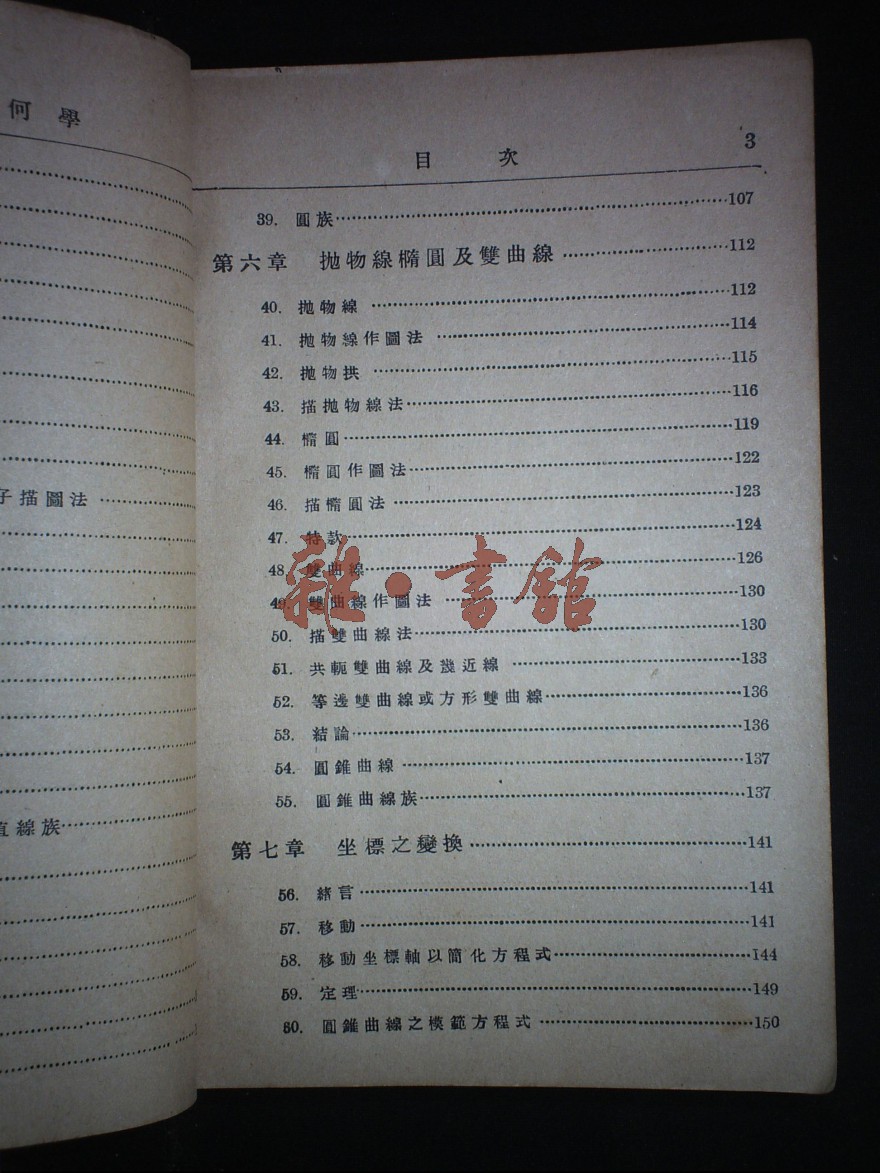 何學
子描圖法
直線族
目次 3
39. 圓族 107
第六章 拋物線橢圓及雙曲線 112
40. 拋物線 112
41. 拋物線作圖法 114
42. 拋物拱 115
43. 描拋物線法 116
44. 橢圓 119
45. 橢圓作圖法 122
46. 描橢圓法 123
47. 特款 124
48. 雙曲線 126
49. 雙曲線作圖法 130
50. 描雙曲線法 130
51. 共軛雙曲線及幾近線 133
52. 等邊雙曲線或方形雙曲線 136
53. 結論 136
54. 圓錐曲線 137
55. 圓錐曲線族 137
第七章 坐標之變換 141
56. 緒言 141
57. 移動 141
58. 移動坐標軸以簡化方程式 144
59. 定理 149
60. 圓錐曲線之模範方程式 150
雜·書館